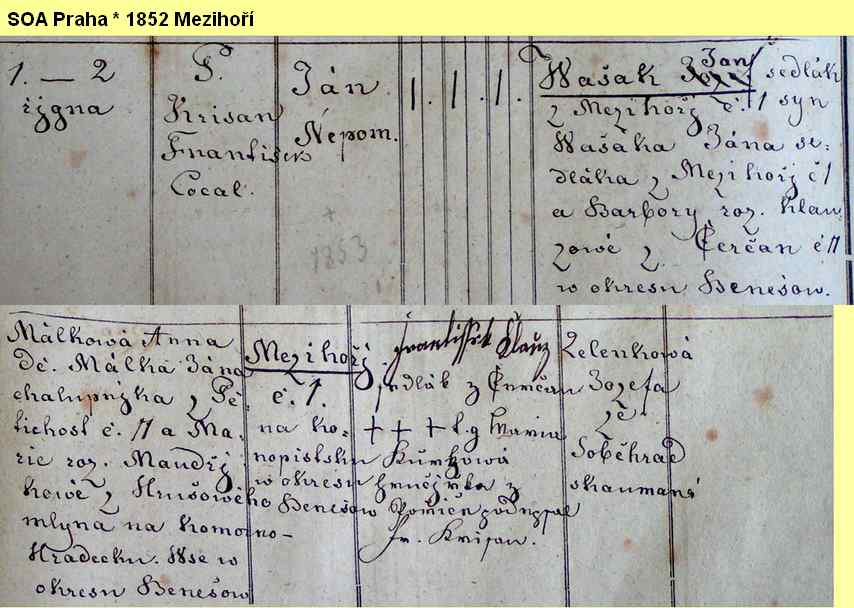 SOA Praha * 1852 Mezihoří
1. — 2
řjgna
P.
Krisan
Frantisek
Cocal.
Ján
Nepom.
+
1853
1. 1. 1.
Wašak Jan sedlák
z Mezihořj č. 1 syn
Wašáka Jána se-
dláka z Mezihořj č 1
a Barbory roz. Klau
zowé z Čerčan č 11
w okresu Benešow.
Málkowá Anna
dc. Málka Jána
chalupnjka z Pě-
tichost č. 11 a Ma-
rie roz. Maudrj
kowé z Hrušowého
mlýna na Komorno-
Hradecku. Wse w
okresu Benešow
Mezihořj
č. 1.
na Ko-
nopistsku
w okresu
Benešow
Frantissek Klauz
sedlák z Čerčan
+ + + t. g Maria
Kurkowá
z
Pořiče podepsal
Fr. Krisan.
Zelenková
Jozefa
ze
Soběhrad
skaumaná